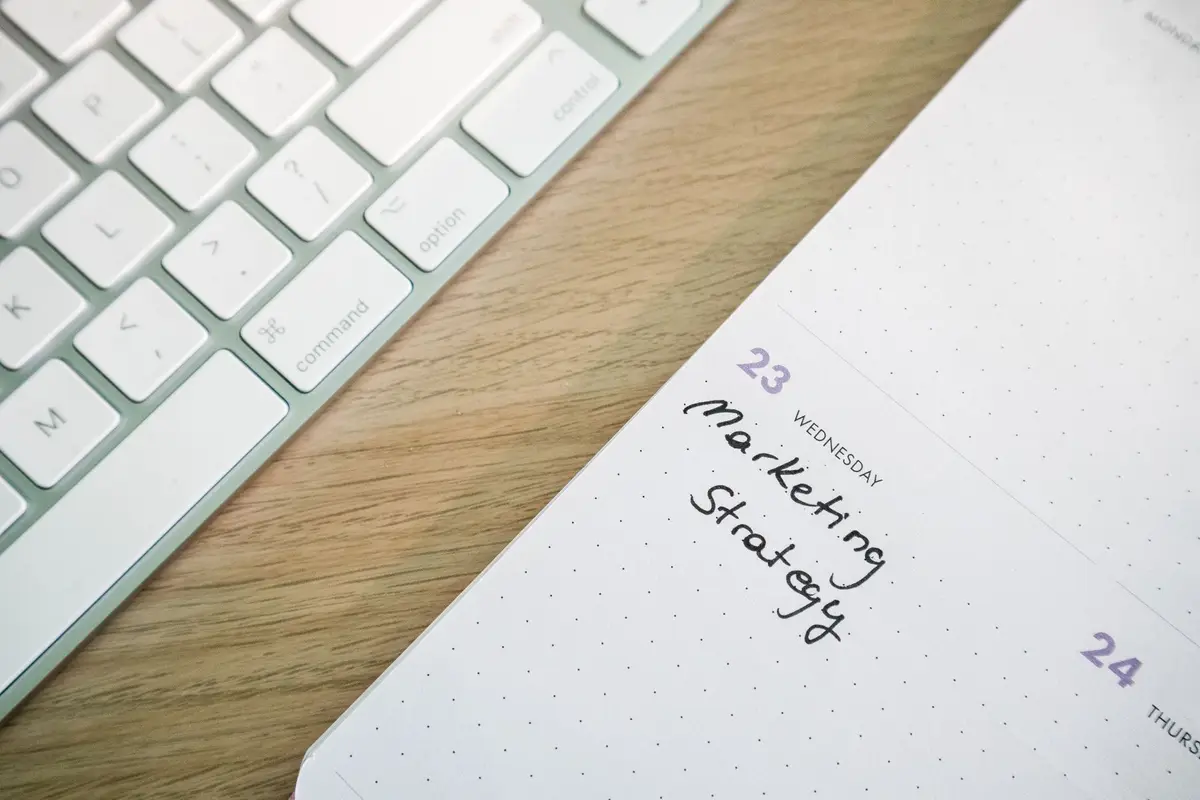 control
option
⌘
command
P
O
L
K
M
?
/
>
.
<
,
MONDAY
23
WEDNESDAY
Marketing
Strategy
24
THURS